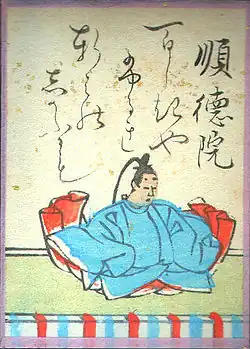 順德院
百しきや
ふるき
軒はの
しのふにも